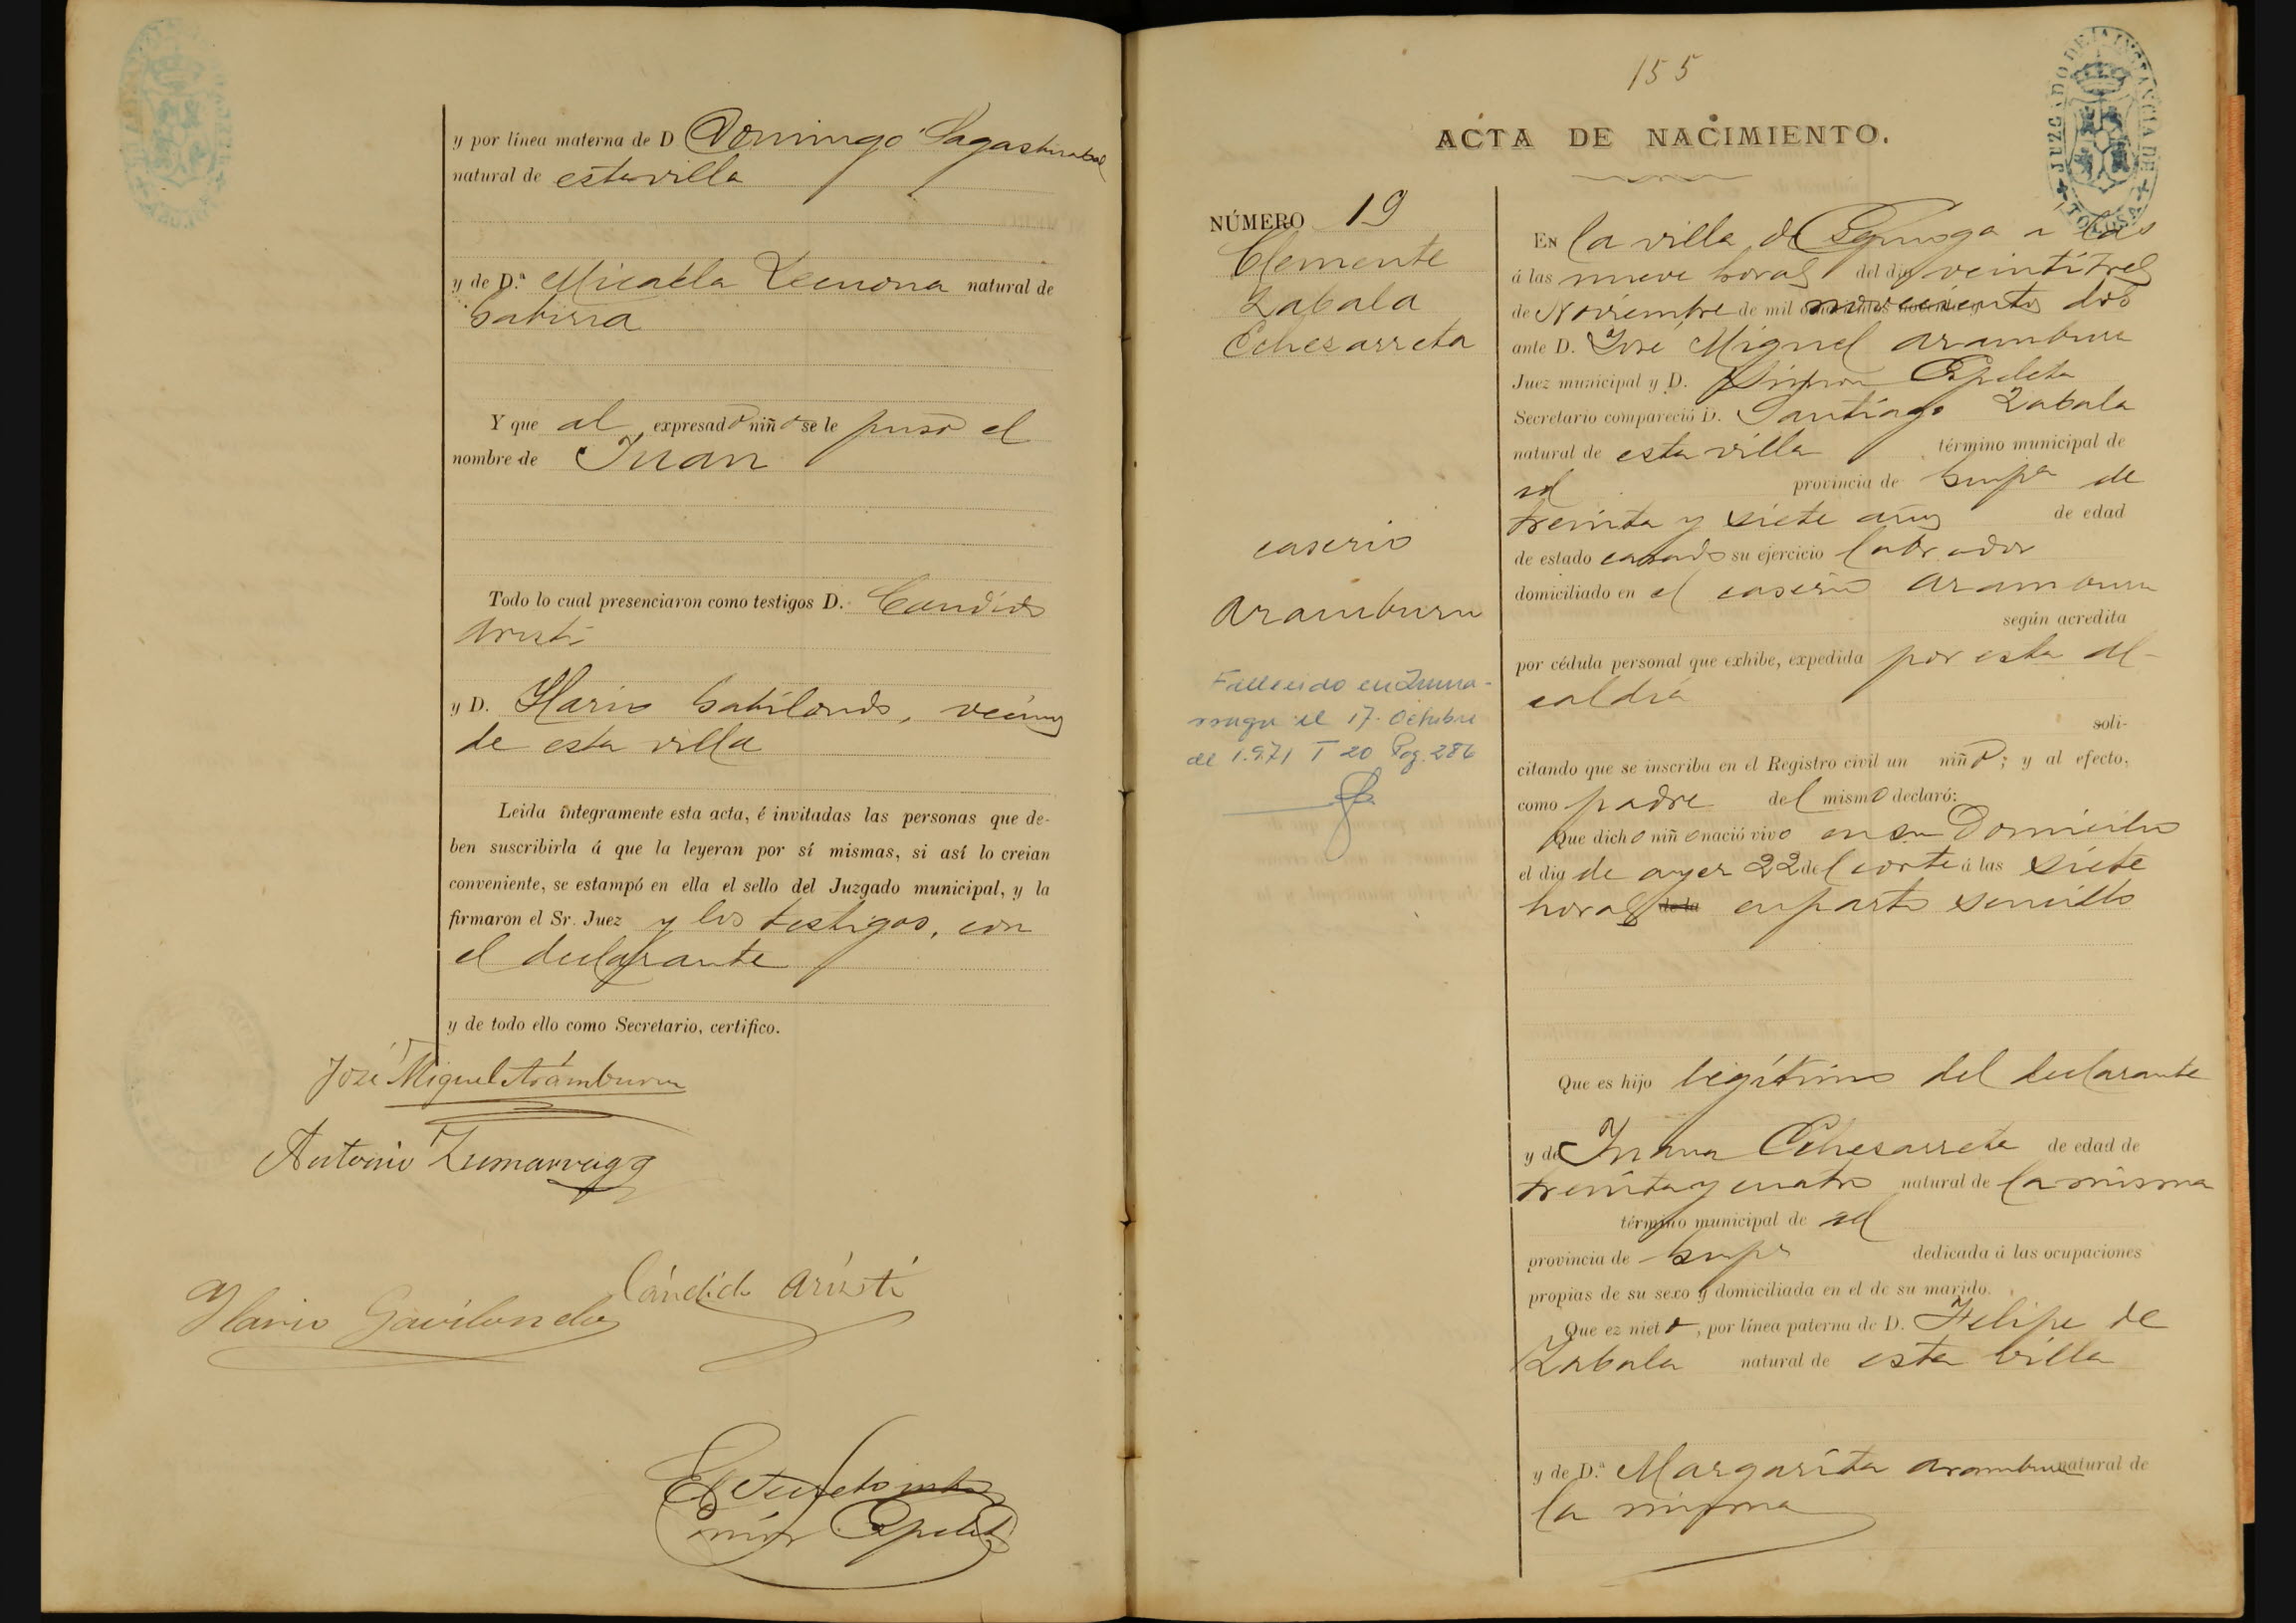 y por línea materna de D Domingo Sagastizabal
natural de esta villa
y de D.ª Micaela Lecuona natural de
Gabiria
Y que al expresado niño se le puso el
nombre de Juan
Todo lo cual presenciaron como testigos D. Candido
Aristi
y D. Ylario Gabilondo, vecinos
de esta villa
Leida íntegramente esta acta, é invitadas las personas que de-
ben suscribirla á que la leyeran por sí mismas, si así lo creian
conveniente, se estampó en ella el sello del Juzgado municipal, y la
firmaron el Sr. Juez y los testigos, con
el declarante
y de todo ello como Secretario, certifico.
José Miguel Aramburu
Antonio Zumarraga
Cándido Aristi
Ylario Gavilondo
155
ACTA DE NACIMIENTO.
JUZGADO DE 1ª INSTANCIA DE TOLOSA
NÚMERO 19
Clemente
Zabala
Echezarreta
caserio
Aramburu
Fallecido en Zuma-
rraga el 17 Octubre
de 1.971 T 20 Pag. 286
EN la villa de a las
á las nueve horas del dia veintitres
de Noviembre de mil novecientos dos
ante D. José Miguel Aramburu
Juez municipal y D. Simon Apeleta
Secretario compareció D. Santiago Zabala
natural de esta villa término municipal de
id provincia de Guipª de
treinta y siete años de edad
de estado casado su ejercicio labrador
domiciliado en el caserio Aramburu
según acredita
por cédula personal que exhibe, expedida por esta al-
caldia
soli-
citando que se inscriba en el Registro civil un niño; y al efecto,
como padre del mismo declaró:
Que dicho niño nació vivo en su Domicilio
el dia de ayer 22 del corte á las siete
horas de la en parto sencillo
Que es hijo legítimo del declarante
y de Juana Echezarreta de edad de
treinta y cuatro natural de la misma
término municipal de id
provincia de Guipª dedicada á las ocupaciones
propias de su sexo y domiciliada en el de su marido.
Que ez nieto, por línea paterna de D. Felipe de
Zabala natural de esta villa
y de D.ª Margarita Aramburu natural de
la misma